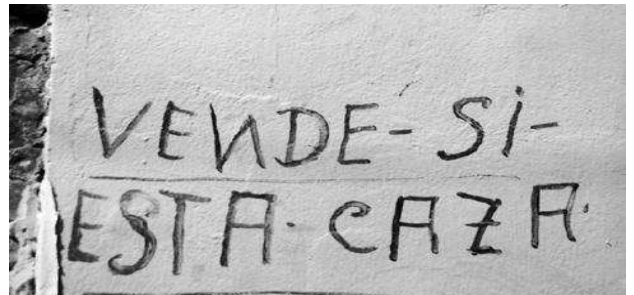 VENDE-SI-
ESTA·CAZA·